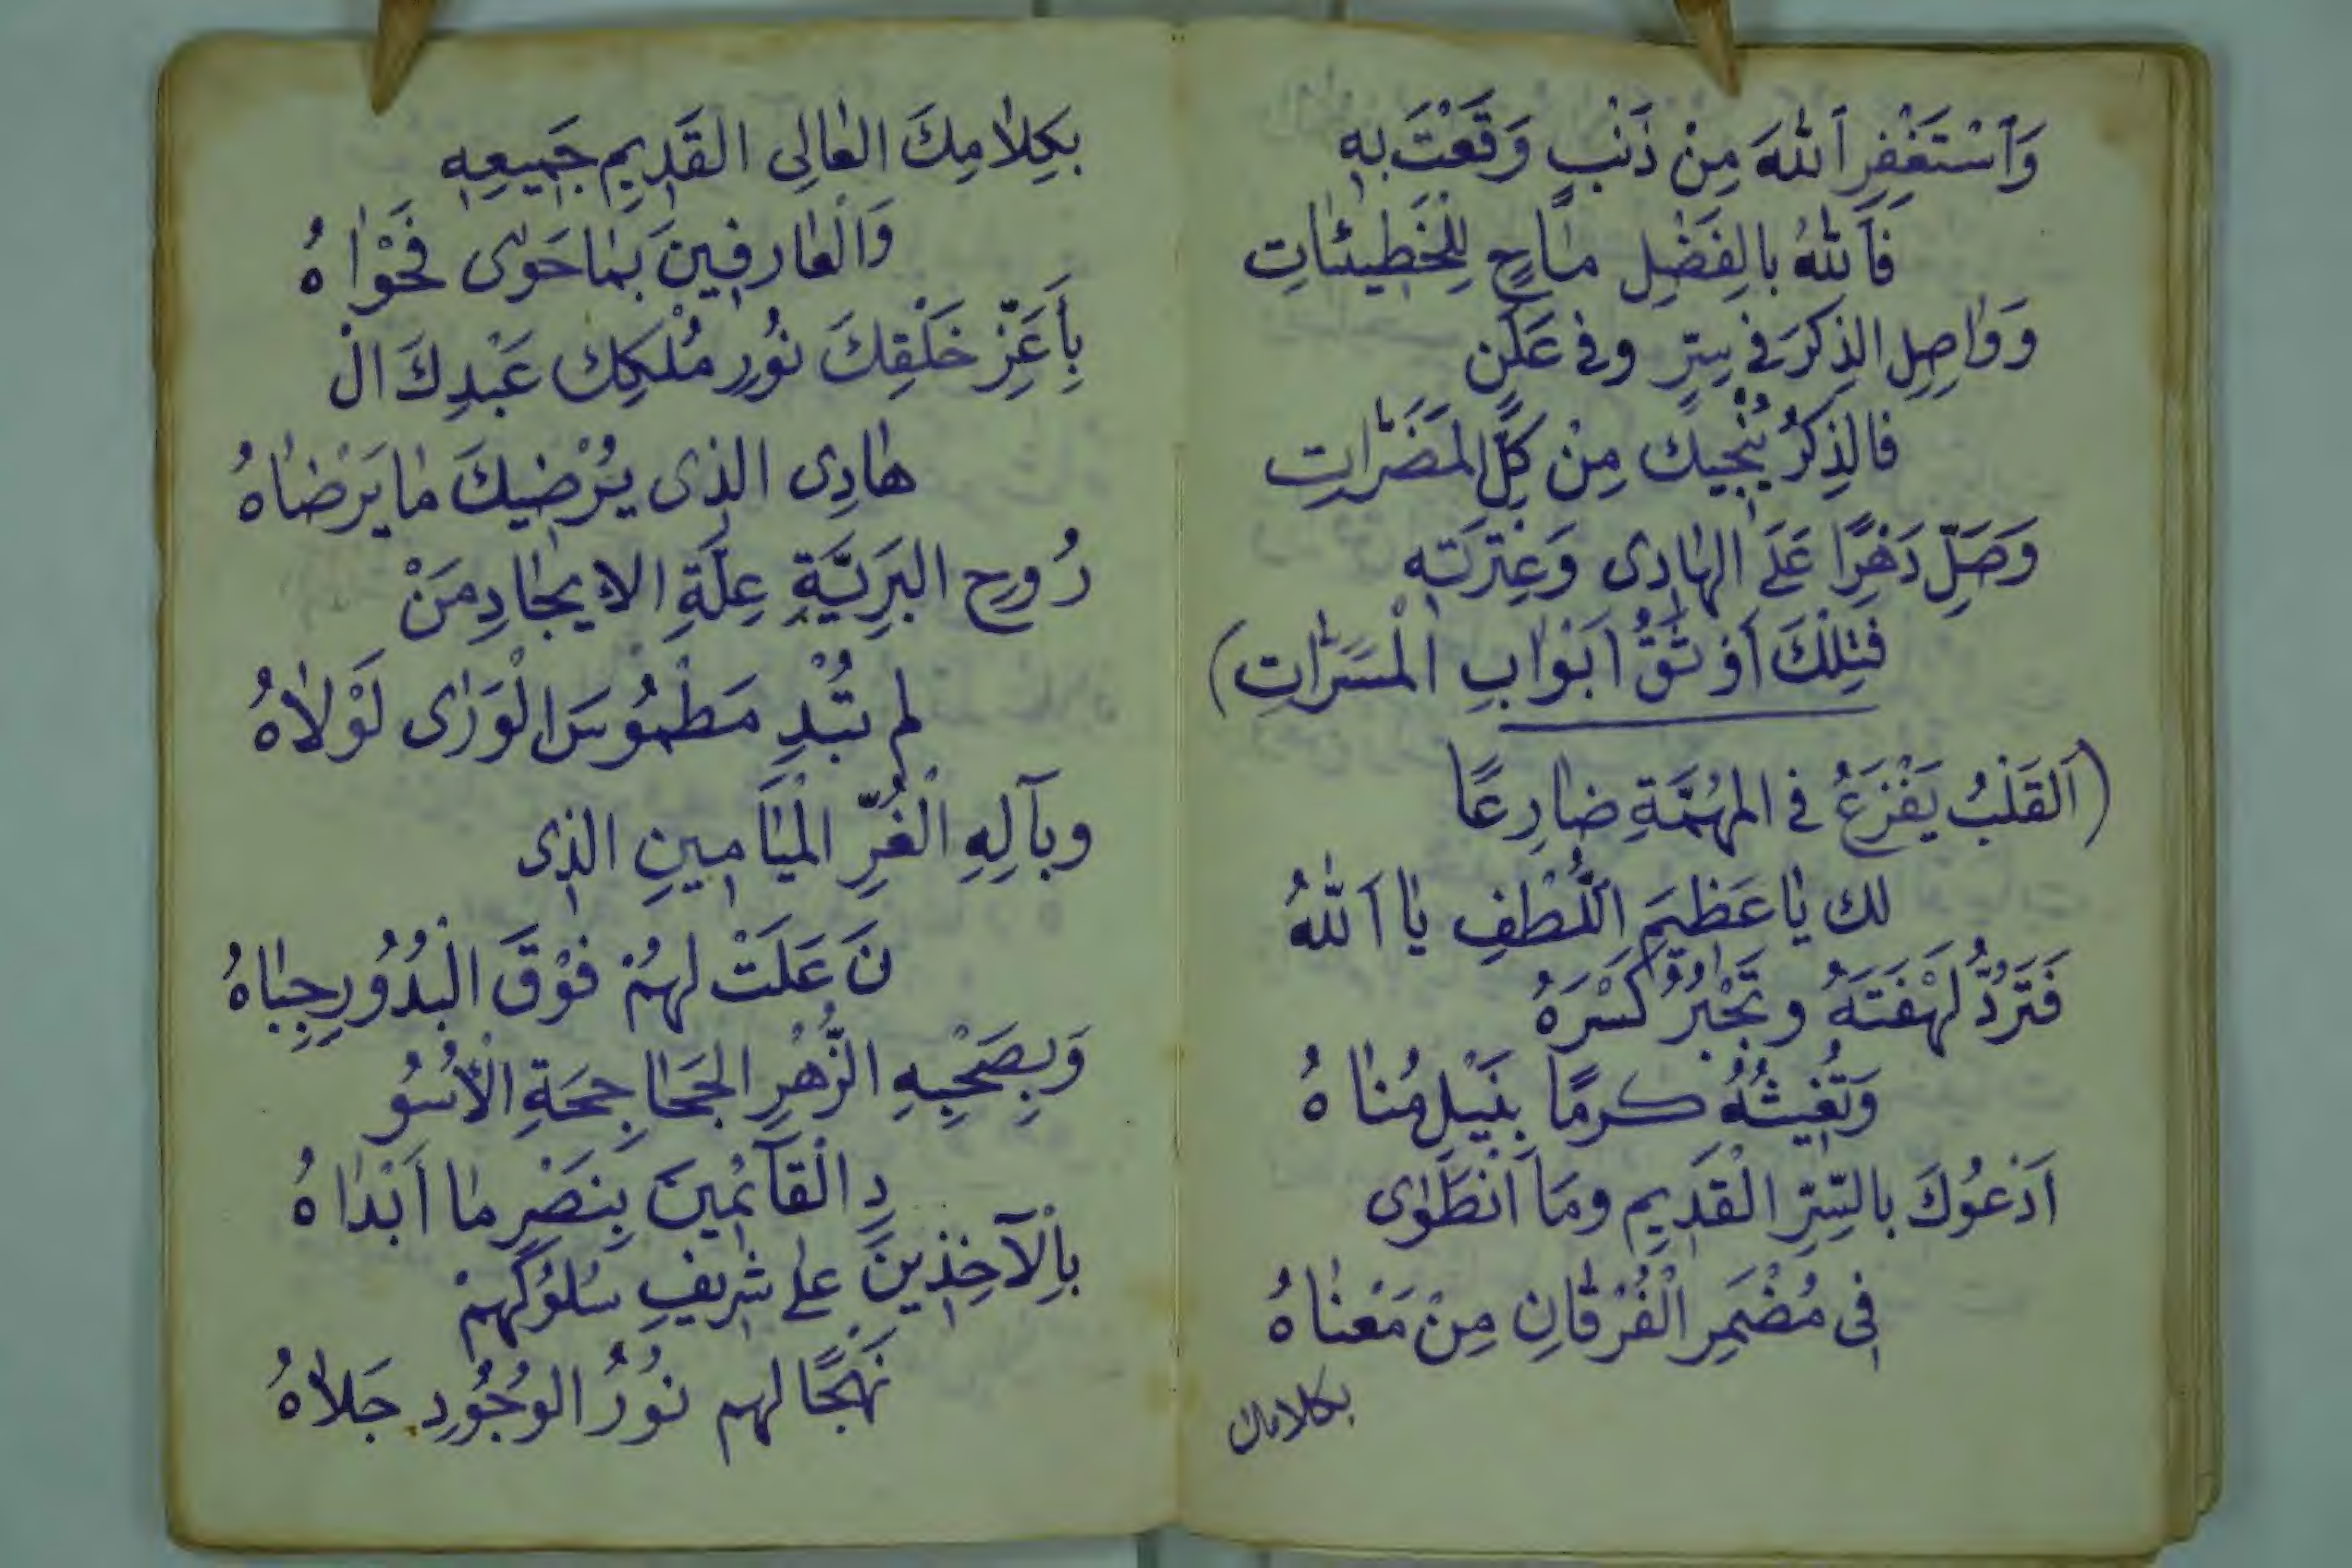 وَاَسْتَغْفِرِ اَللهَ مِنْ ذَنْبٍ وَقَعْتَ بِهِ
فَاَللهُ بِالفَضْلِ مَاحٍ لِلْخَطِيئَاتِ
وَوَاصِلِ الذِكْرَ فِي سِرٍّ وفي عَلَنٍ
فالذِكْرُ يُنْجِيكَ مِنْ كُلِّ المَضَرَّاتِ
وَصَلِّ دَهْرًا عَلَى الهَادِى وَعِتْرَتِهِ
فَتِلْكَ أَوْثَقُ اَبْوَابِ الْمَسَرَّاتِ)
(اَلقَلْبُ يَفْزَعُ في المهُمَّةِ ضَارِعًا
لك يَا عَظِيمَ اللُّطْفِ يَا اَللهُ
فَتَرُدُّ لَهْفَتَهُ وتَجْبُرُ كَسْرَهُ
وَتُغِيثُهُ كرمًا بِنَيْلِ مُنَاهُ
اَدْعُوكَ بالسِّرِّ الْقَدِيمِ ومَا اَنْطَوَى
فِي مُضْمَرِ الْفُرْقَانِ مِنْ مَعْنَاهُ
بكلامك
بكِلَامِكَ العَالِى القَدِيمِ جَمِيعِهِ
وَالْعَارِفِينَ بمَا حَوَى فَحْوَاهُ
بِأَعَزِّ خَلْقِكَ نُورِ مُلْكِكَ عَبْدِكَ الْ
هَادِى الذِى يُرْضِيكَ مَا يَرْضَاهُ
رُوحِ البَرِيَّةِ عِلَّةِ الايجَادِ مَنْ
لم تُبْدِ مَطْمُوسَ الْوَرَى لَوْلَاهُ
وبآلِهِ الْغُرِّ الْمَيَامِينِ الذِى
نَ عَلَتْ لهُمْ فَوْقَ الْبُدُورِ جِبَاهُ
وَبِصَحْبِهِ الزُّهْرِ الجَحَاجِحَةِ الْأُسُو
دِ الْقَآئِمِينَ بِنَصْرِ مَا اَبْدَاهُ
بِاْلآخِذِينَ على شَرِيفِ سُلُوكِهمْ
نَهْجًا لهم نُورُ الوُجُودِ جَلَاهُ